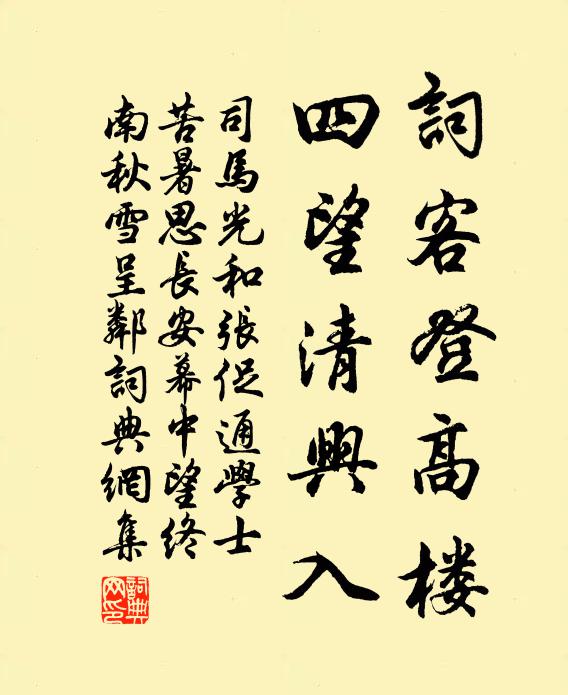 詞客登高楼
四望清興入
司馬光和張伲通學士
苦暑思長安幕中望终
南秋雪呈鄰詞典網集
詞典
网印